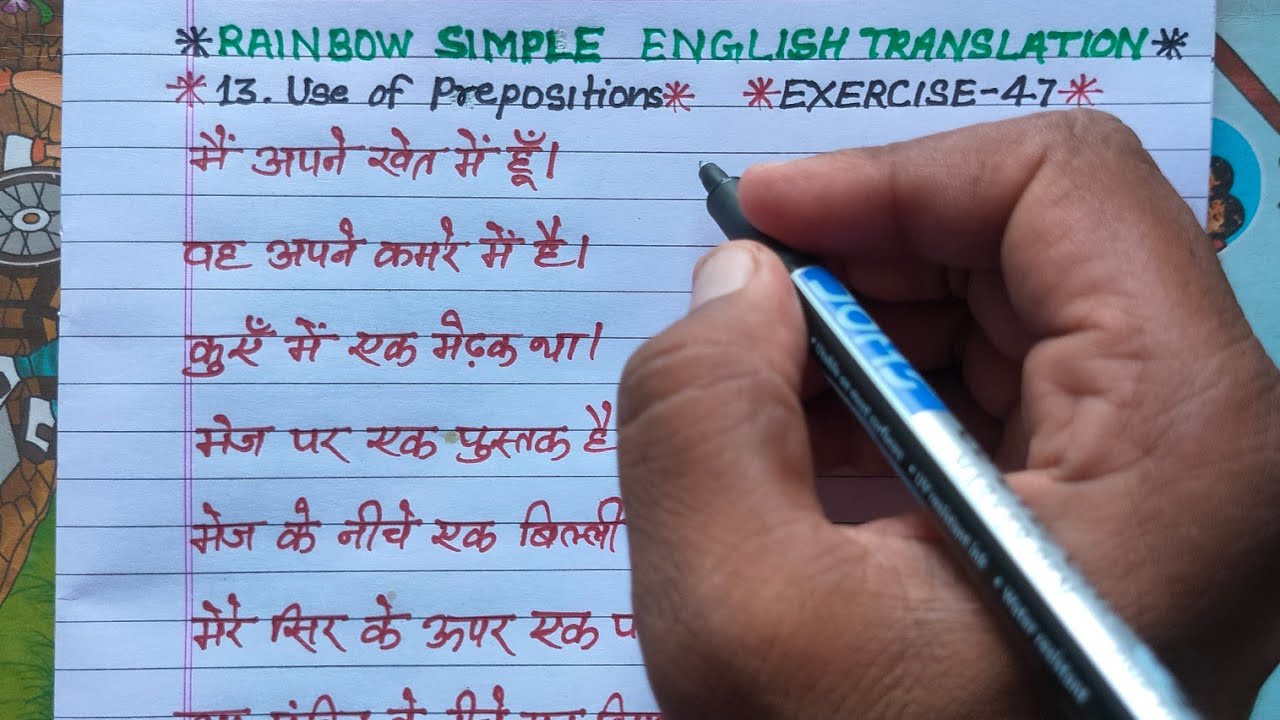 *RAINBOW SIMPLE ENGLISH TRANSLATION*
*13. Use of Prepositions* *EXERCISE-47*
मैं अपने खेत में हूँ।
वह अपने कमरे में है।
कुएँ में एक मेढ़क था।
मेज पर एक पुस्तक है
मेज के नीचे एक बिल्ली
मेरे सिर के ऊपर एक